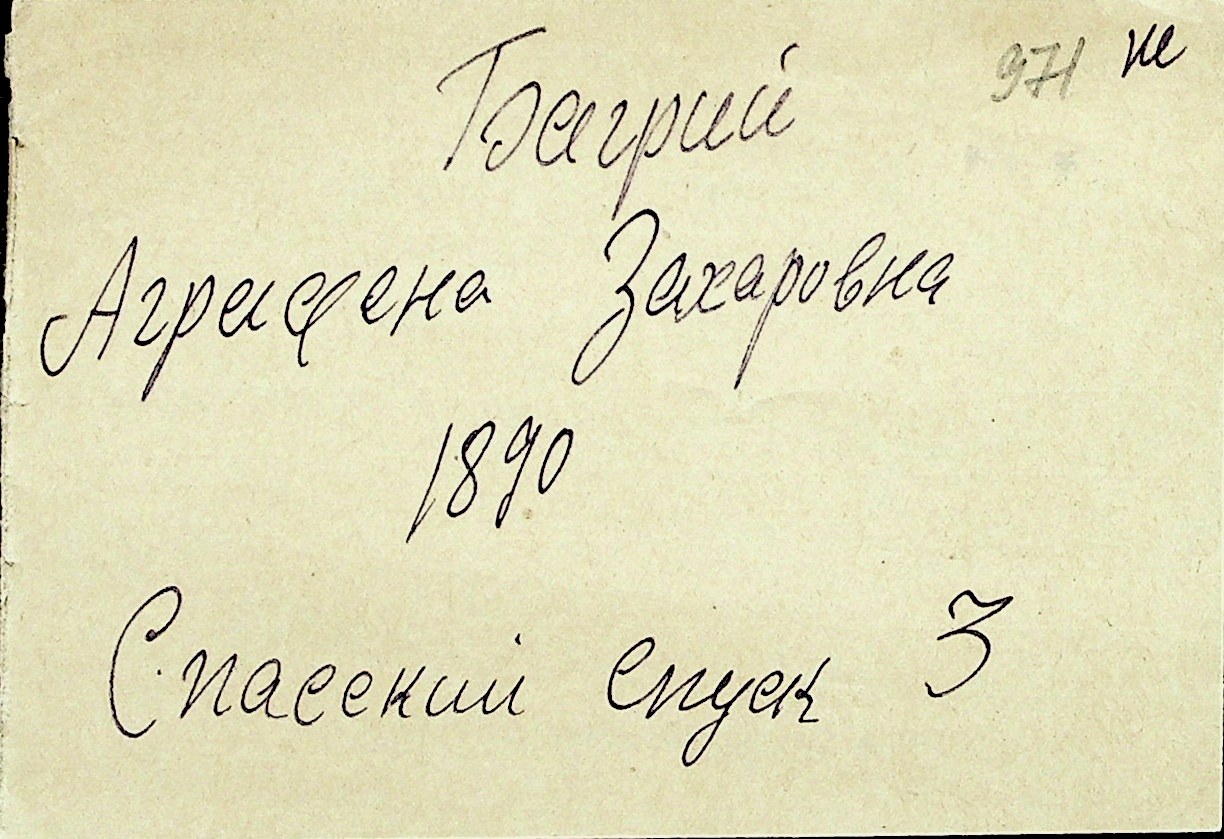 971 не
Багрий
Аграфена Захаровна
1890
Спасский спуск 3